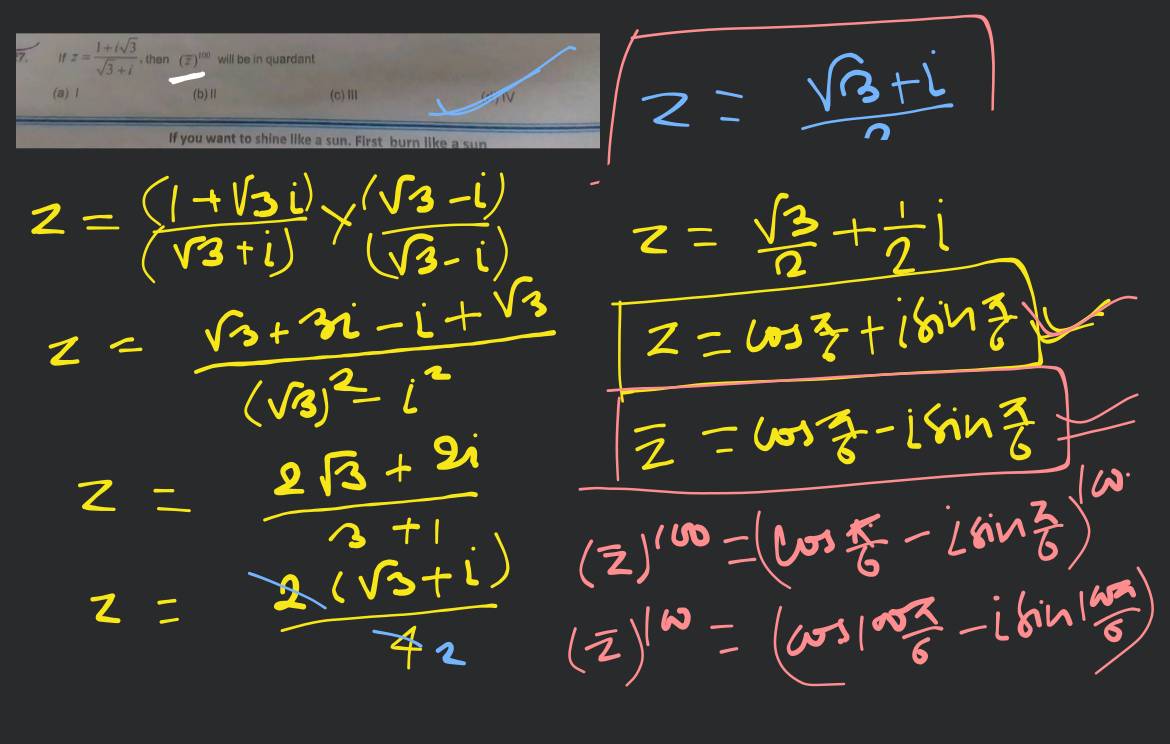 27. If z = (1+i√3)/(√3+i), then (z̅)¹⁰⁰ will be in quardant
(a) I (b) II (c) III (d) IV
If you want to shine like a sun. First burn like a sun
z = (1+√3i)/(√3+i) × (√3-i)/(√3-i)
z = (√3+3i-i+√3)/((√3)²-i²)
z = (2√3+2i)/(3+1)
z = 2(√3+i)/4 2
z = (√3+i)/2
z = √3/2 + 1/2 i
z = cos π/6 + i sin π/6
z̅ = cos π/6 - i sin π/6
(z̅)¹⁰⁰ = (cos π/6 - i sin π/6)¹⁰⁰
(z̅)¹⁰⁰ = (cos 100π/6 - i sin 100π/6)